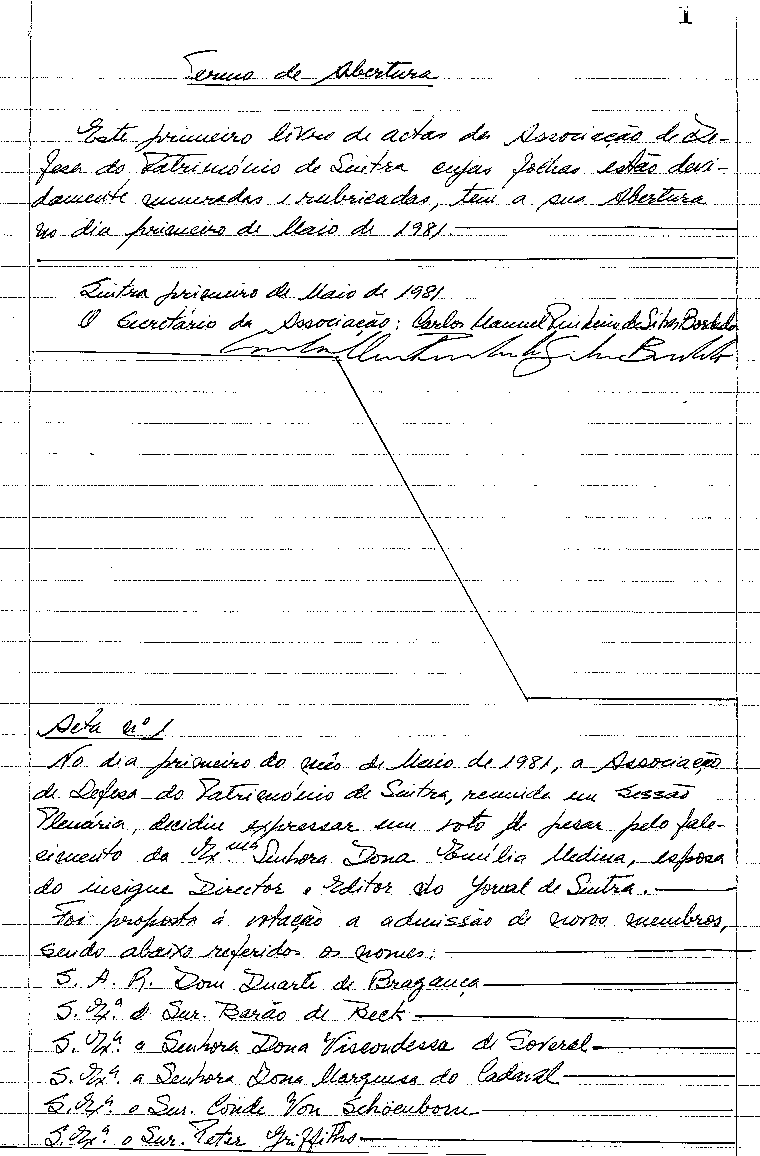 1
Termo de Abertura
Este primeiro livro de actas da Associação de De-
fesa do Património de Sintra cujas folhas estão devi-
damente numeradas e rubricadas, tem a sua Abertura
no dia primeiro de Maio de 1981.
Sintra primeiro de Maio de 1981
O Secretário da Associação: Carlos Manuel de Silva
Acta nº 1
No dia primeiro do mês de Maio de 1981, a Associação
de Defesa do Património de Sintra, reunida em Sessão
Plenária, decidiu expressar um voto de pesar pelo fale-
cimento da Exmª Senhora Dona Emília Medina, esposa
do insigne Director e Editor do Jornal de Sintra.
Foi proposta à votação a admissão de novos membros,
sendo abaixo referidos os nomes:
S. A. R. Dom Duarte de Bragança
S. Exª. o Snr. Barão de Beck
S. Exª. a Senhora Dona Viscondessa de Soveral
S. Exª. a Senhora Dona Marquesa do Cadaval
S. Exª. o Snr. Conde Von Schoenborn
S. Exª. o Snr. Peter Griffiths